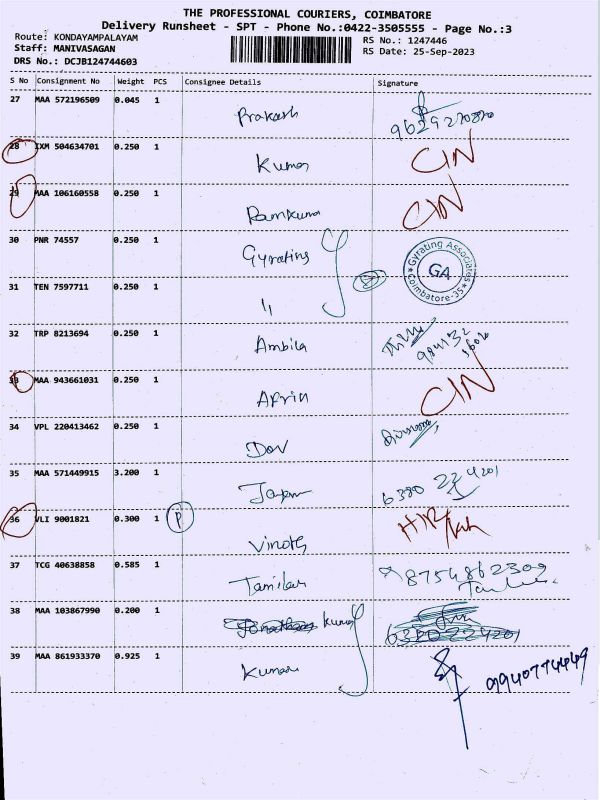 THE PROFESSIONAL COURIERS, COIMBATORE
Delivery Runsheet - SPT - Phone No.:0422-3505555 - Page No.:3
Route: KONDAYAMPALAYAM RS No.: 1247446
Staff: MANIVASAGAN RS Date: 25-Sep-2023
DRS No.: DCJB124744603
S No Consignment No Weight PCS Consignee Details Signature
27 MAA 572196509 0.045 1
Prakash
28 IXM 504634701 0.250 1
Kumar CIN
29 MAA 106160558 0.250 1
Ramkuma CIN
30 PNR 74557 0.250 1
Gyrating Gyrating Associates GA Coimbatore-35
31 TEN 7597711 0.250 1
11
32 TRP 8213694 0.250 1
Ambika
33 MAA 943661031 0.250 1
Afrin CIN
34 VPL 220413462 0.250 1
Dov
35 MAA 571449915 3.200 1
6380 224201
36 VLI 9001821 0.300 1 P
Vinoth
37 TCG 40638858 0.585 1
8754862309
38 MAA 103867990 0.200 1
6380224201
39 MAA 861933370 0.925 1
Kumar 9940774449